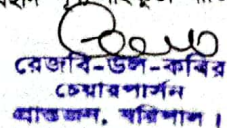 রেজবি-উল-কবির
চেয়ারপার্সন
আভজন, বরিশাল।